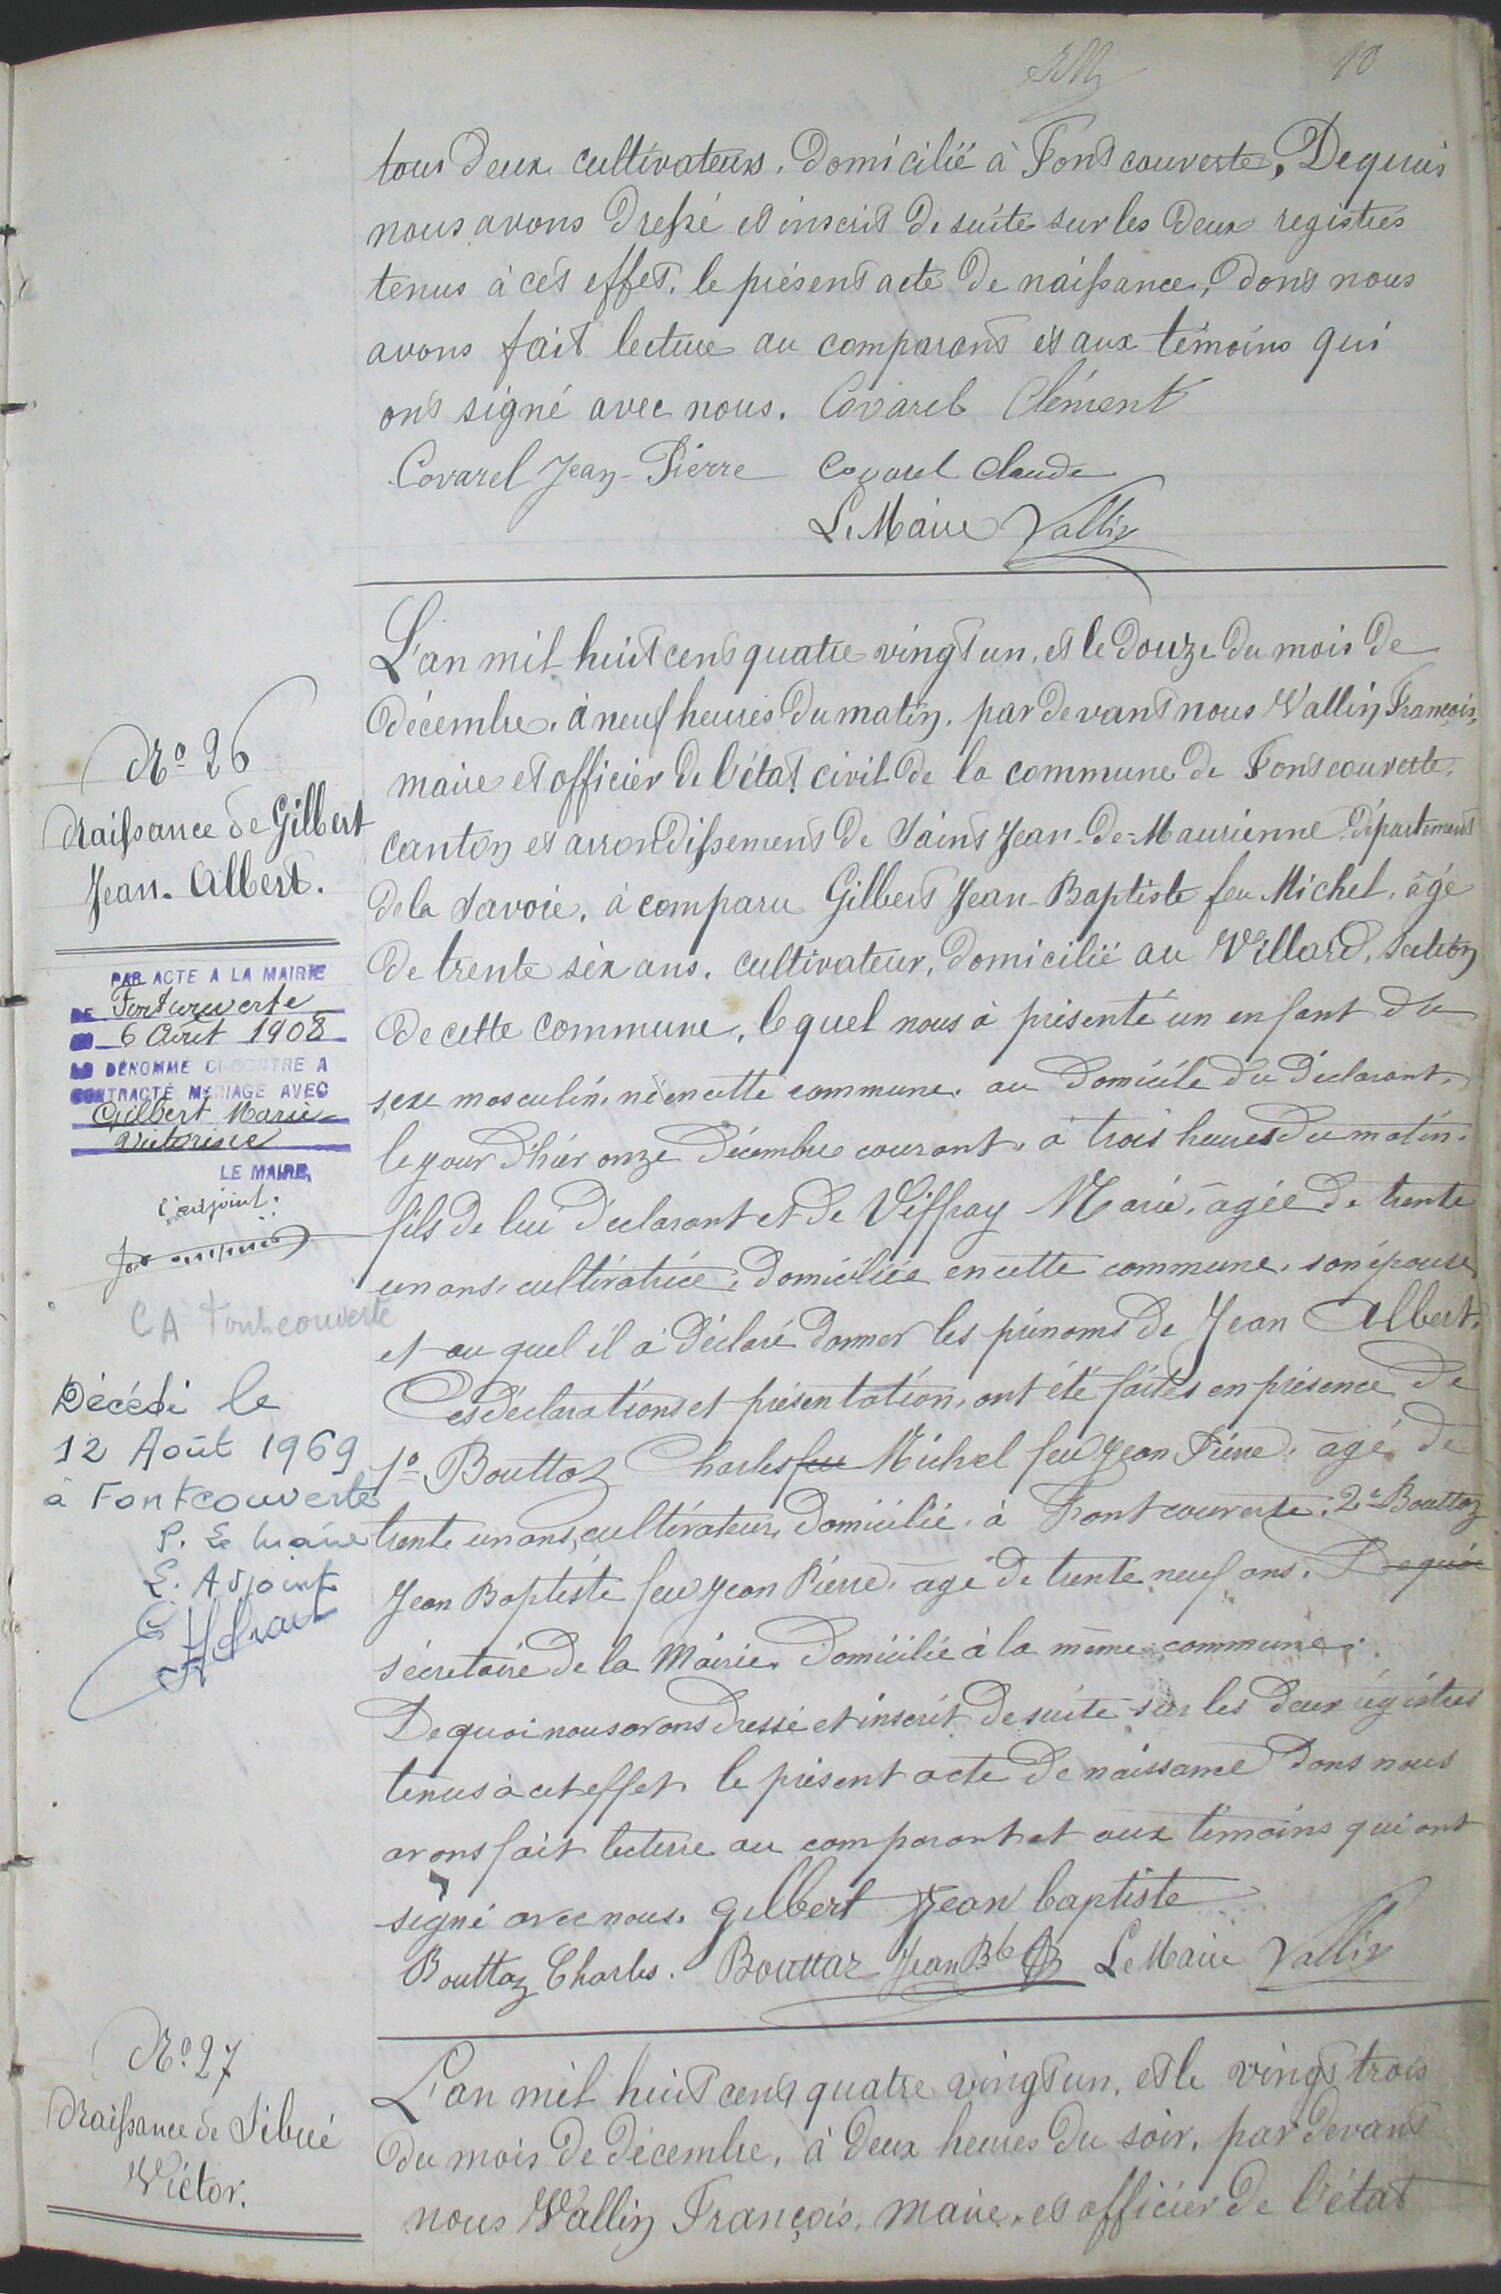 10
tous deux cultivateurs, domicilié à Fontcouverte, Dequois
nous avons dressé et inscrit de suite sur les deux registres
tenus à cet effet, le présent acte de naissance, dont nous
avons fait lecture au comparant et aux témoins qui
ont signé avec nous. Covarel Clément
Covarel Jean-Pierre Covarel Claude
Le Maire Vallin
N° 26
Naissance de Gilbert
Jean-Albert.
PAR ACTE A LA MAIRIE
DE Fontcouverte
6 Août 1908
LE DÉNOMMÉ CI-CONTRE A
CONTRACTÉ MARIAGE AVEC
Gilbert Marie
Victorine
LE MAIRE,
l'adjoint.
CA Fontcouverte
Décédé le
12 Août 1969
à Fontcouverte
P. Le Maire
L. Adjoint
L'an mil huit cent quatre vingt un, et le douze du mois de
décembre, à neuf heures du matin, par devant nous Vallin François,
maire et officier de l'état civil de la commune de Fontcouverte,
canton et arrondissement de Saint Jean-de-Maurienne département
de la Savoie, à comparu Gilbert Jean-Baptiste feu Michel, âgé
de trente six ans, cultivateur, domicilié au Villard, section
de cette commune, lequel nous à présenté un enfant du
sexe masculin, né en cette commune, au domicile du déclarant,
le jour d'hier onze décembre courant, à trois heures du matin,
fils de lui déclarant et de Viffray Marie, âgée de trente
un ans, cultivatrice, domiciliée en cette commune, son épouse
et au quel il à déclaré donner les prénoms de Jean Albert.
Ces déclarations et présentation, ont été faites en présence de
1° Bouttaz Charles feu Michel feu Jean Pierre, âgé de
trente un ans, cultivateur, domicilié à Fontcouverte, 2° Bouttaz
Jean Baptiste feu Jean Pierre, âgé de trente neuf ans, Dequoi
sécretaire de la Mairie, domicilié à la même commune.
De quoi nous avons dressé et inscrit de suite sur les deux régistres
tenus à cet effet, le présent acte de naissance dont nous
avons fait lecture au comparant et aux témoins qui ont
signé avec nous. Gilbert Jean baptiste
Bouttaz Charles. Bouttaz Jean Bte Le Maire Vallin
N° 27
Naissance de Sibué
Victor.
L'an mil huit cent quatre vingt un, et le vingt trois
du mois de décembre, à deux heures du soir, par devant
nous Vallin François, maire, et officier de l'état